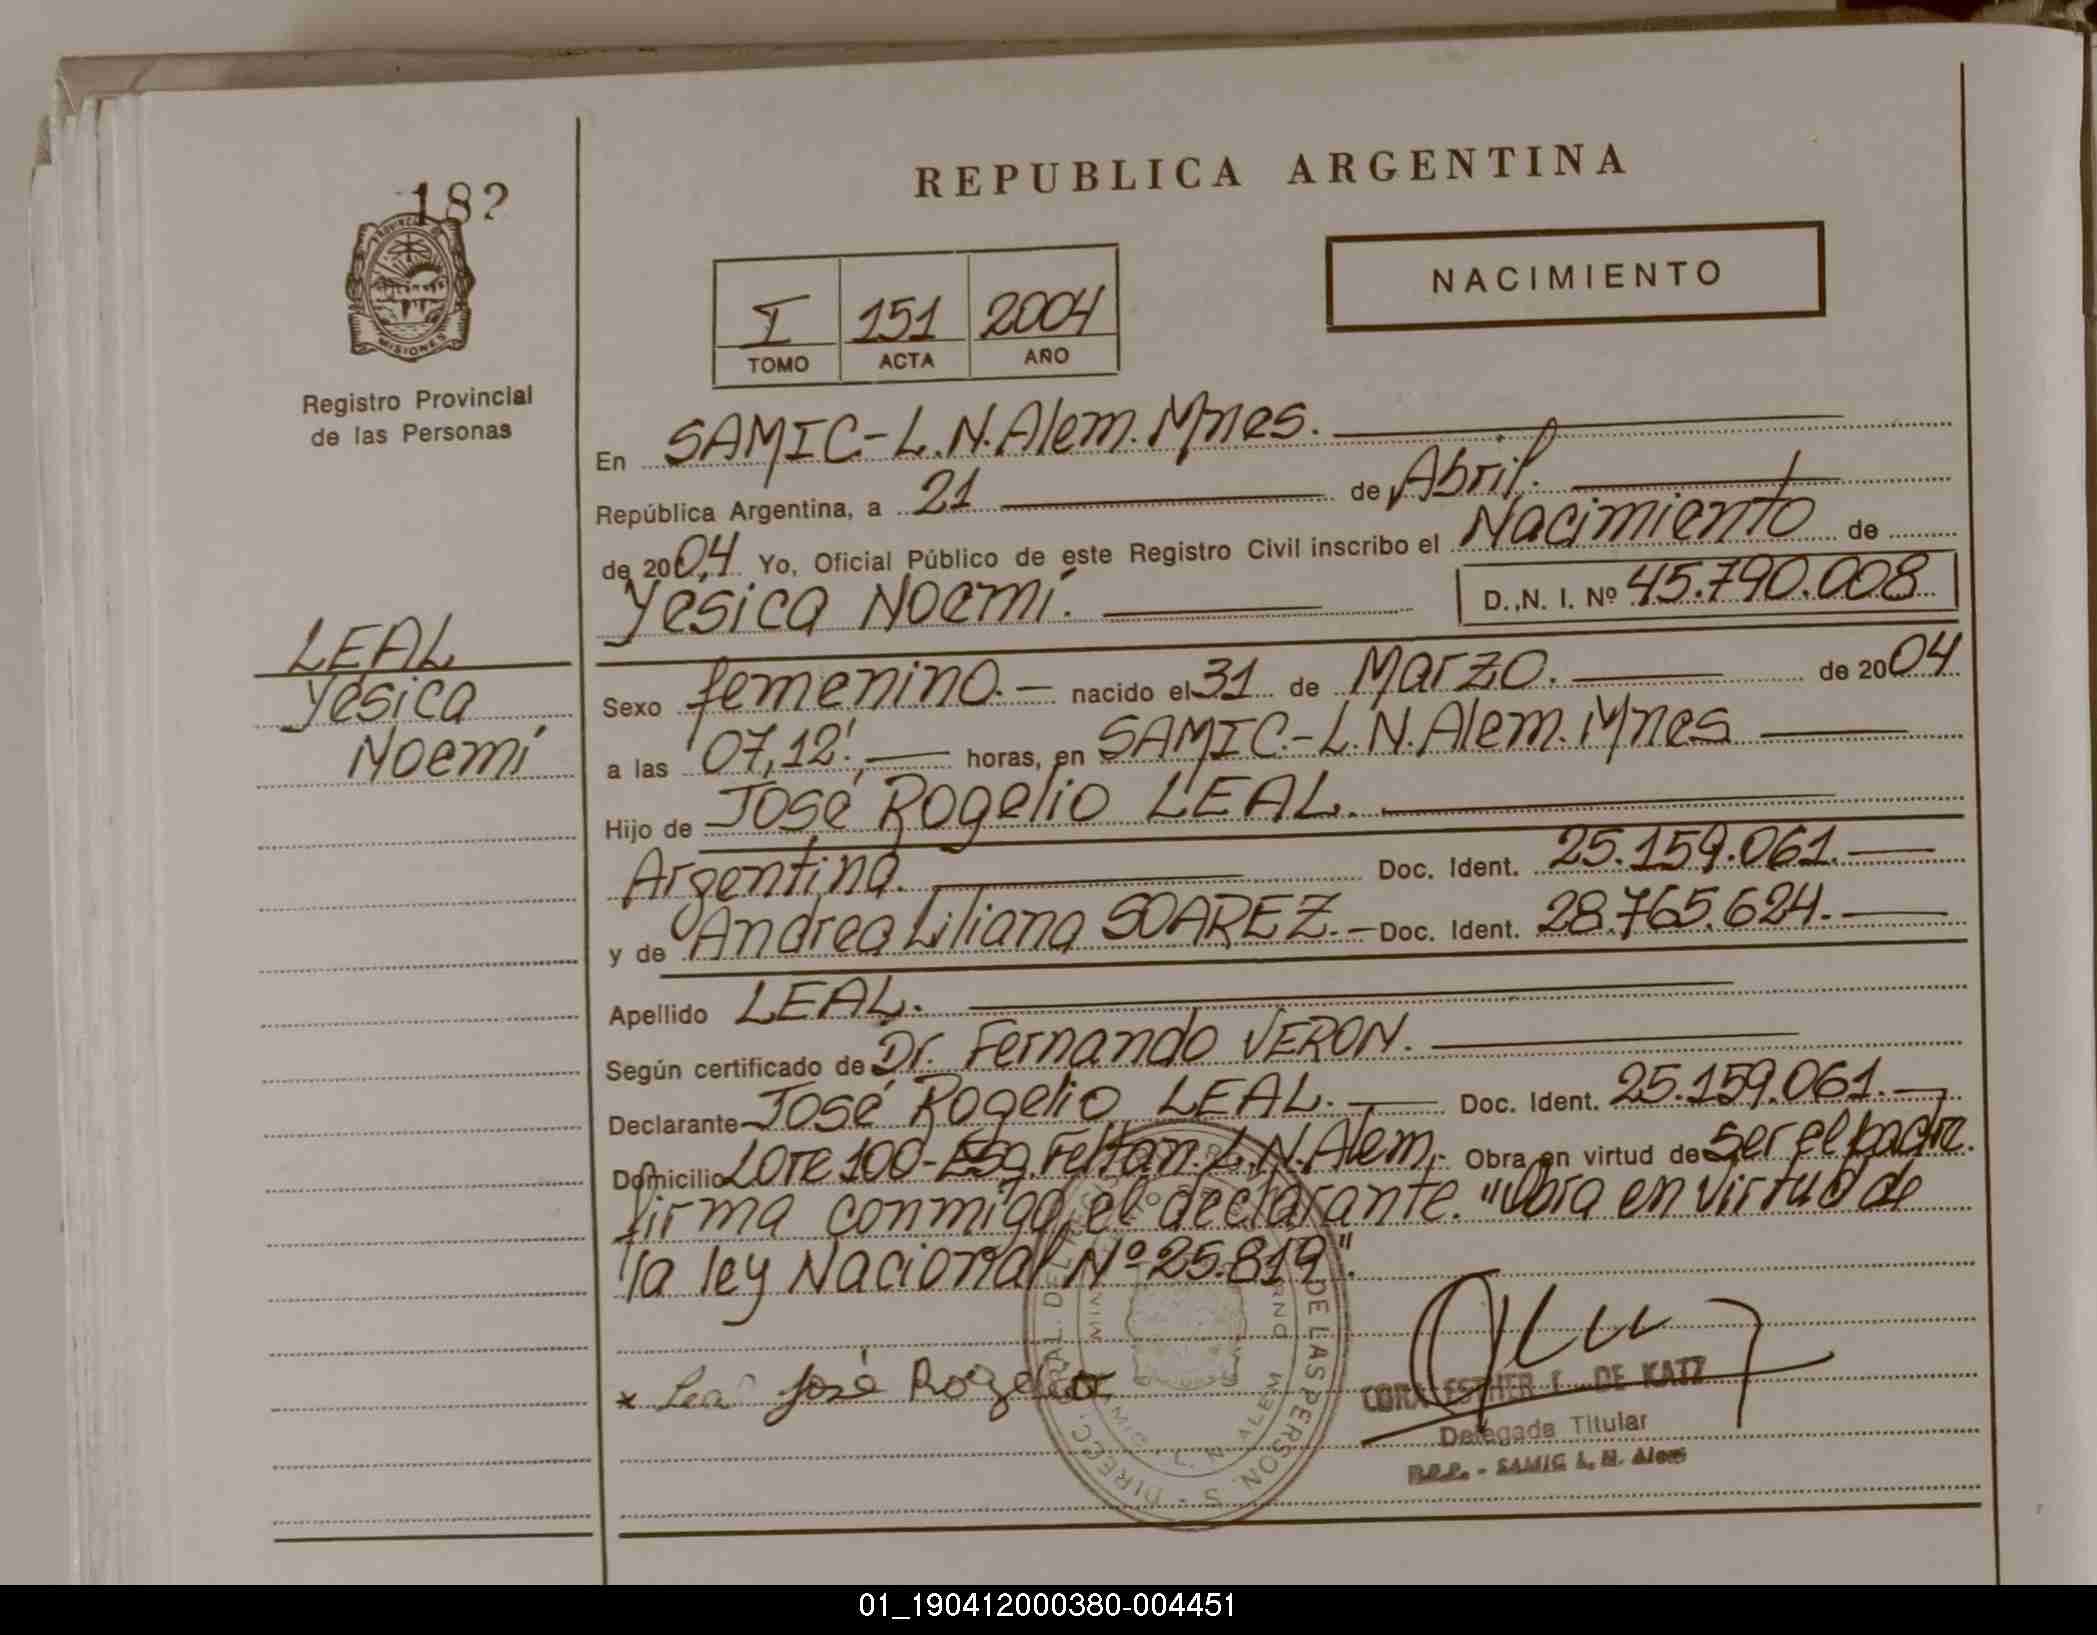 182
PROVINCIA DE
MISIONES
Registro Provincial
de las Personas
REPUBLICA ARGENTINA
NACIMIENTO
I 151 2004
TOMO ACTA AÑO
En SAMIC-L.N.Alem.Mnes.
República Argentina, a 21 de Abril.
de 2004 Yo, Oficial Público de este Registro Civil inscribo el Nacimiento de
Yésica Noemí. D.N.I. Nº 45.790.008
LEAL
Yésica
Noemí
Sexo femenino.- nacido el 31 de Marzo. de 2004
a las 07,12', horas, en SAMIC.-L.N.Alem.Mnes
Hijo de José Rogelio LEAL.
Argentina. Doc. Ident. 25.159.061.
y de Andrea Liliana SOAREZ.- Doc. Ident. 28.765.624.
Apellido LEAL.
Según certificado de Dr. Fernando VERON.
Declarante José Rogelio LEAL. Doc. Ident. 25.159.061.
Domicilio Lote 100-Esq. Feltan. L.N.Alem.- Obra en virtud de ser el padre.
firma conmigo, el declarante. "Obra en virtud de
"la ley Nacional Nº 25.819".
* Leal José Rogelio
DE LAS PERSON. S - DIRECC.
L. N. ALEM
CORA ESTHER DE KATZ
Delegada Titular
R.P.P. - SAMIC L. N. Alem
01_190412000380-004451